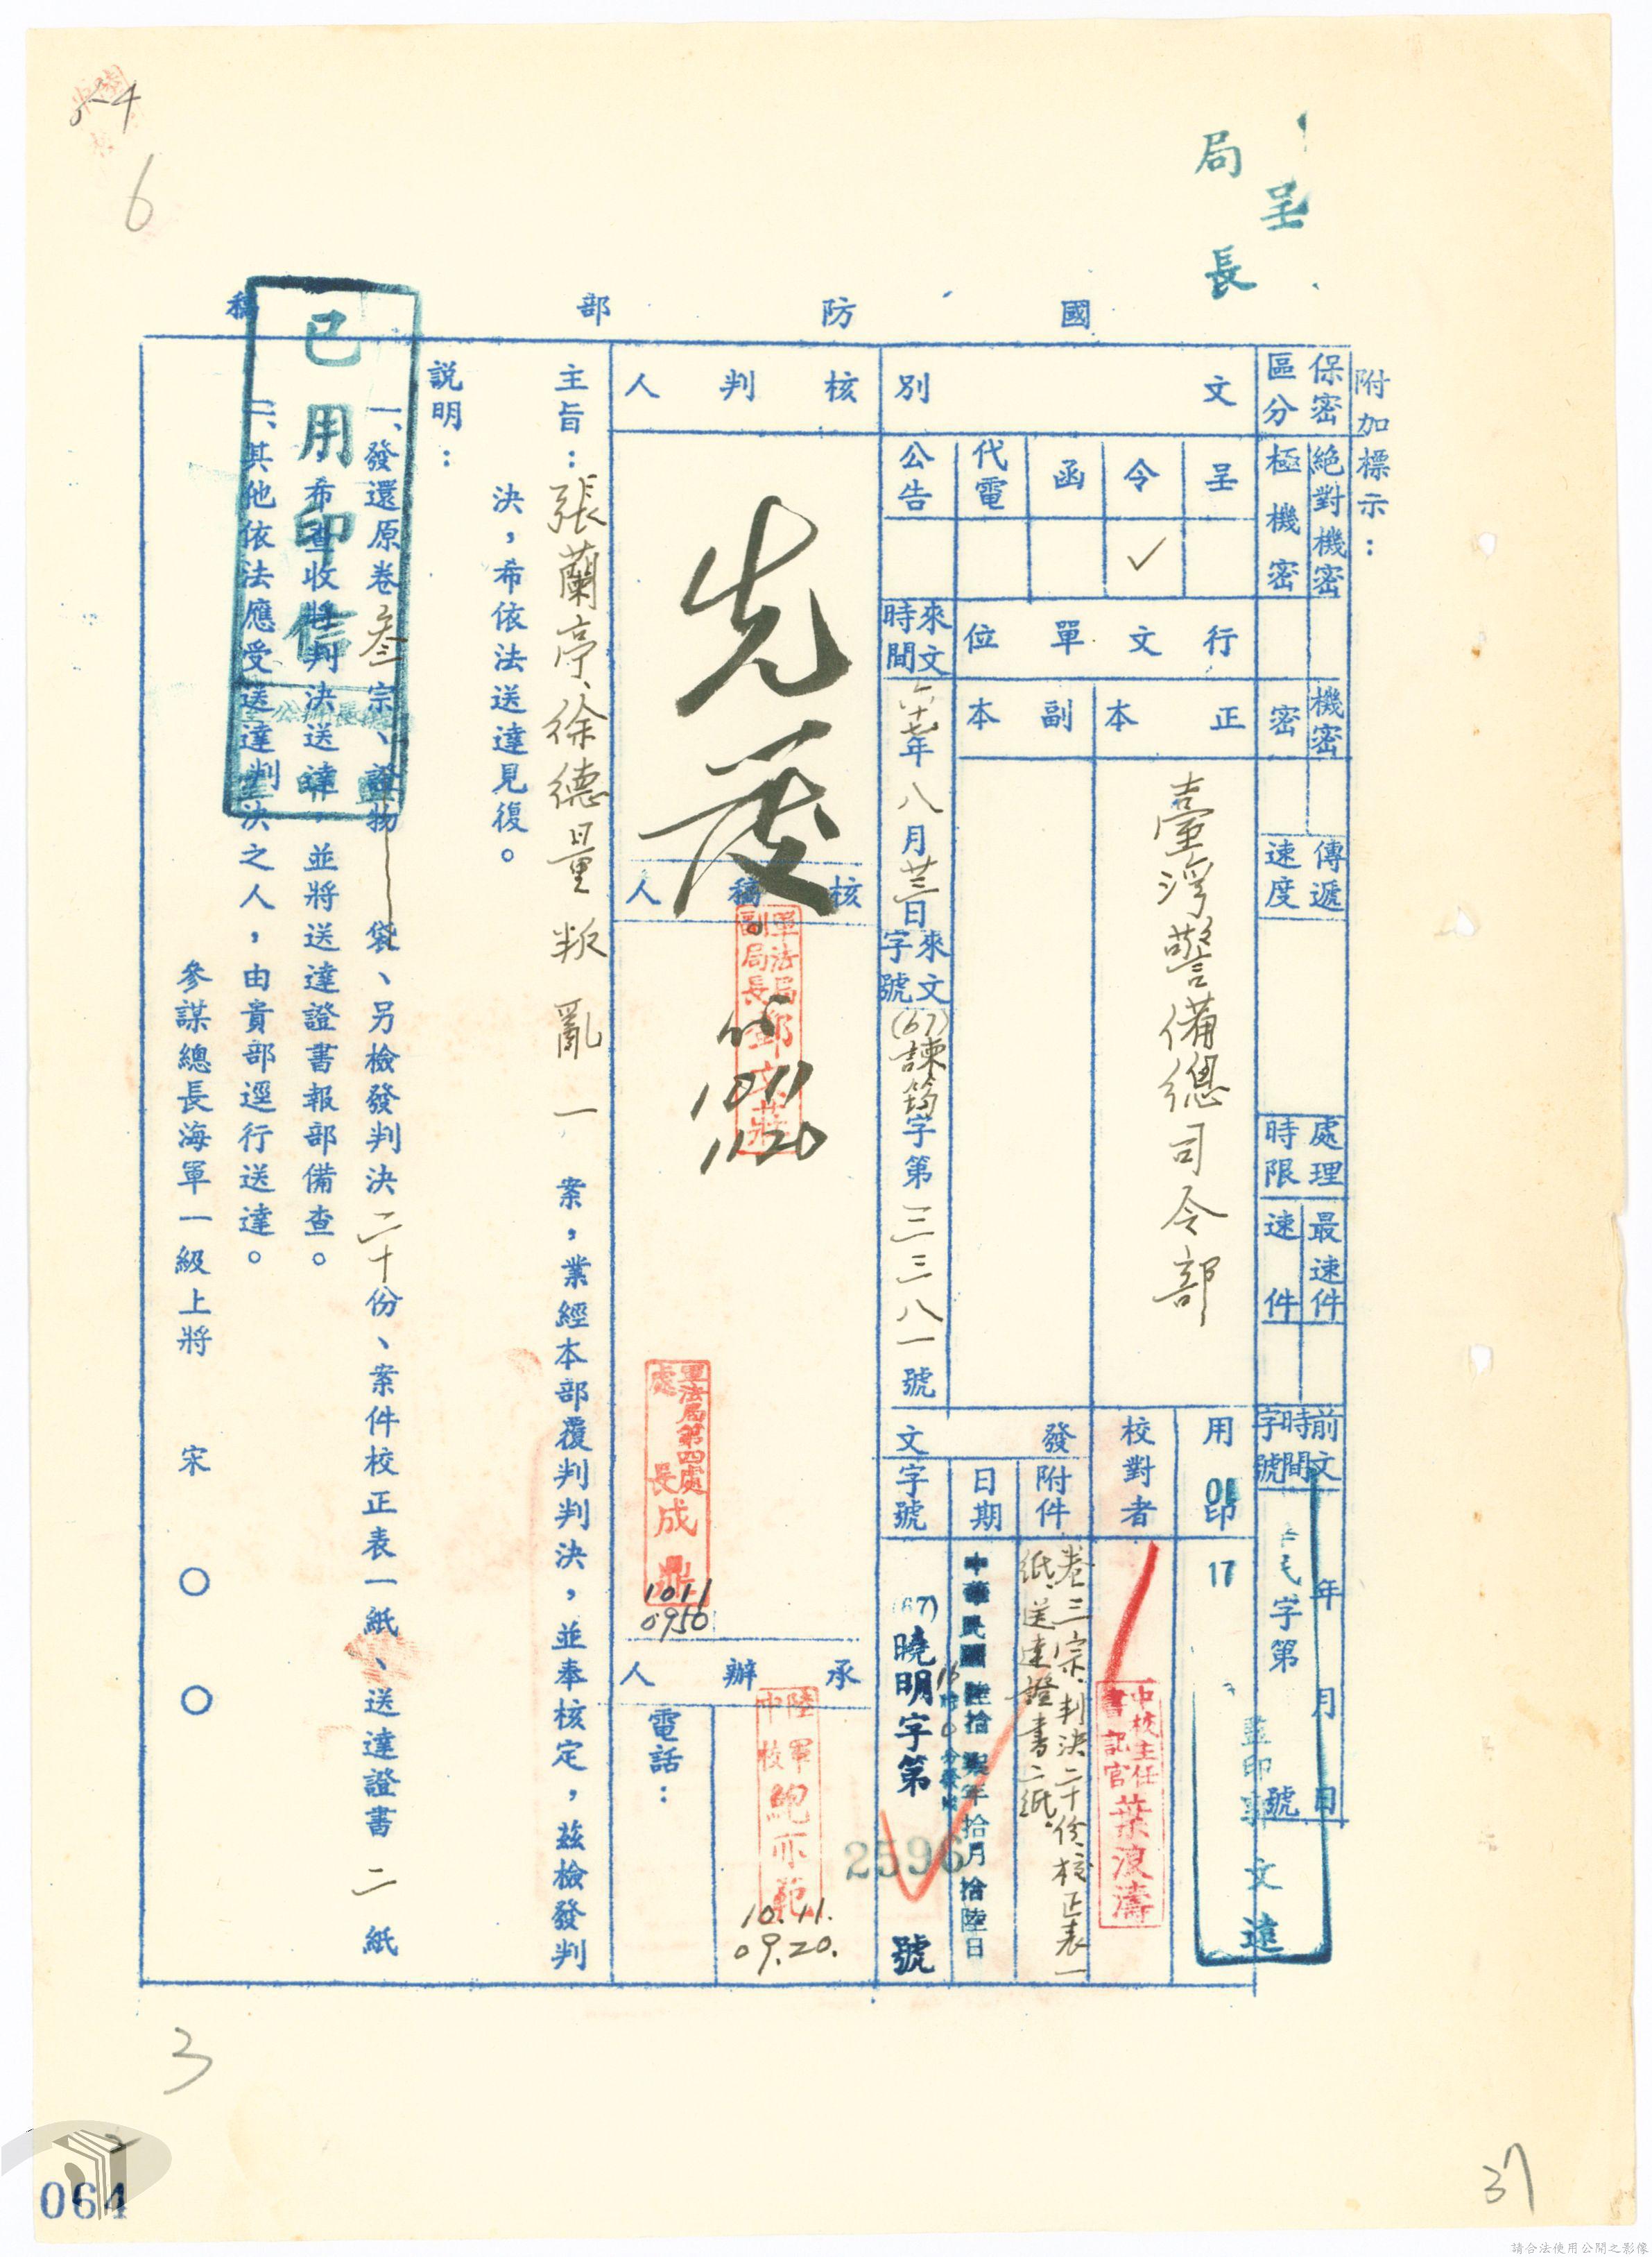 局長
呈
國防部稿
附加標示：
保密區分
絕對機密
極機密
機密
密
傳遞速度
處理時限
最速件
速件
前文時間字號
年月日
字第
號
文別
呈
令
✓
函
代電
公告
行文單位
正本
臺灣警備總司令部
副本
來文時間
六十七年八月廿三日
來文字號
(67)諫筠字第三三八一號
用印
17
監印
文遠
校對者
中校主任書記官葉浪濤
發文
附件
卷三宗、判決二十份、校正表一紙、送達證書二紙。
日期
中華民國陸拾柒年拾月拾陸日
字號
(67)曉明字第
2596
號
核判人
核稿人
軍法局副局長
1011
1120
軍法局第四處處長成鼎
1011
0950
承辦人
陸軍中校鮑亦範
10.11.
09.20.
電話：
主旨：張蘭亭、徐德量叛亂一案，業經本部覆判判決，並奉核定，茲檢發判
決，希依法送達見復。
說明：
一、發還原卷叁宗、證物—袋、另檢發判決二十份、案件校正表一紙、送達證書二紙
，希查收將判決送達，並將送達證書報部備查。
二、其他依法應受送達判決之人，由貴部逕行送達。
參謀總長海軍一級上將 宋○○
已用印信
54
6
3
2
064
37
請合法使用公開之影像